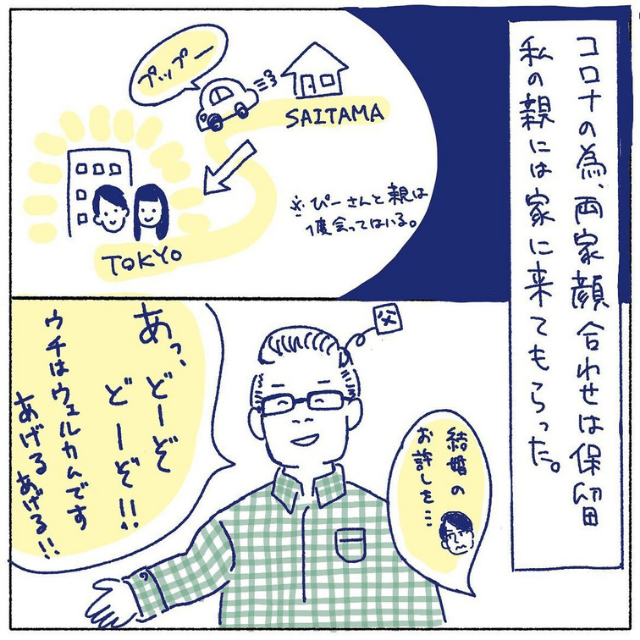 コロナの為、両家顔合わせは保留
私の親には家に来てもらった。
プップー
SAITAMA
TOKYO
※ぴーさんと親は
1度会ってはいる。
父
結婚の
お許しを…
あっ、
どーぞ
どーぞ!!
ウチはウェルカムです
あげるあげる!!